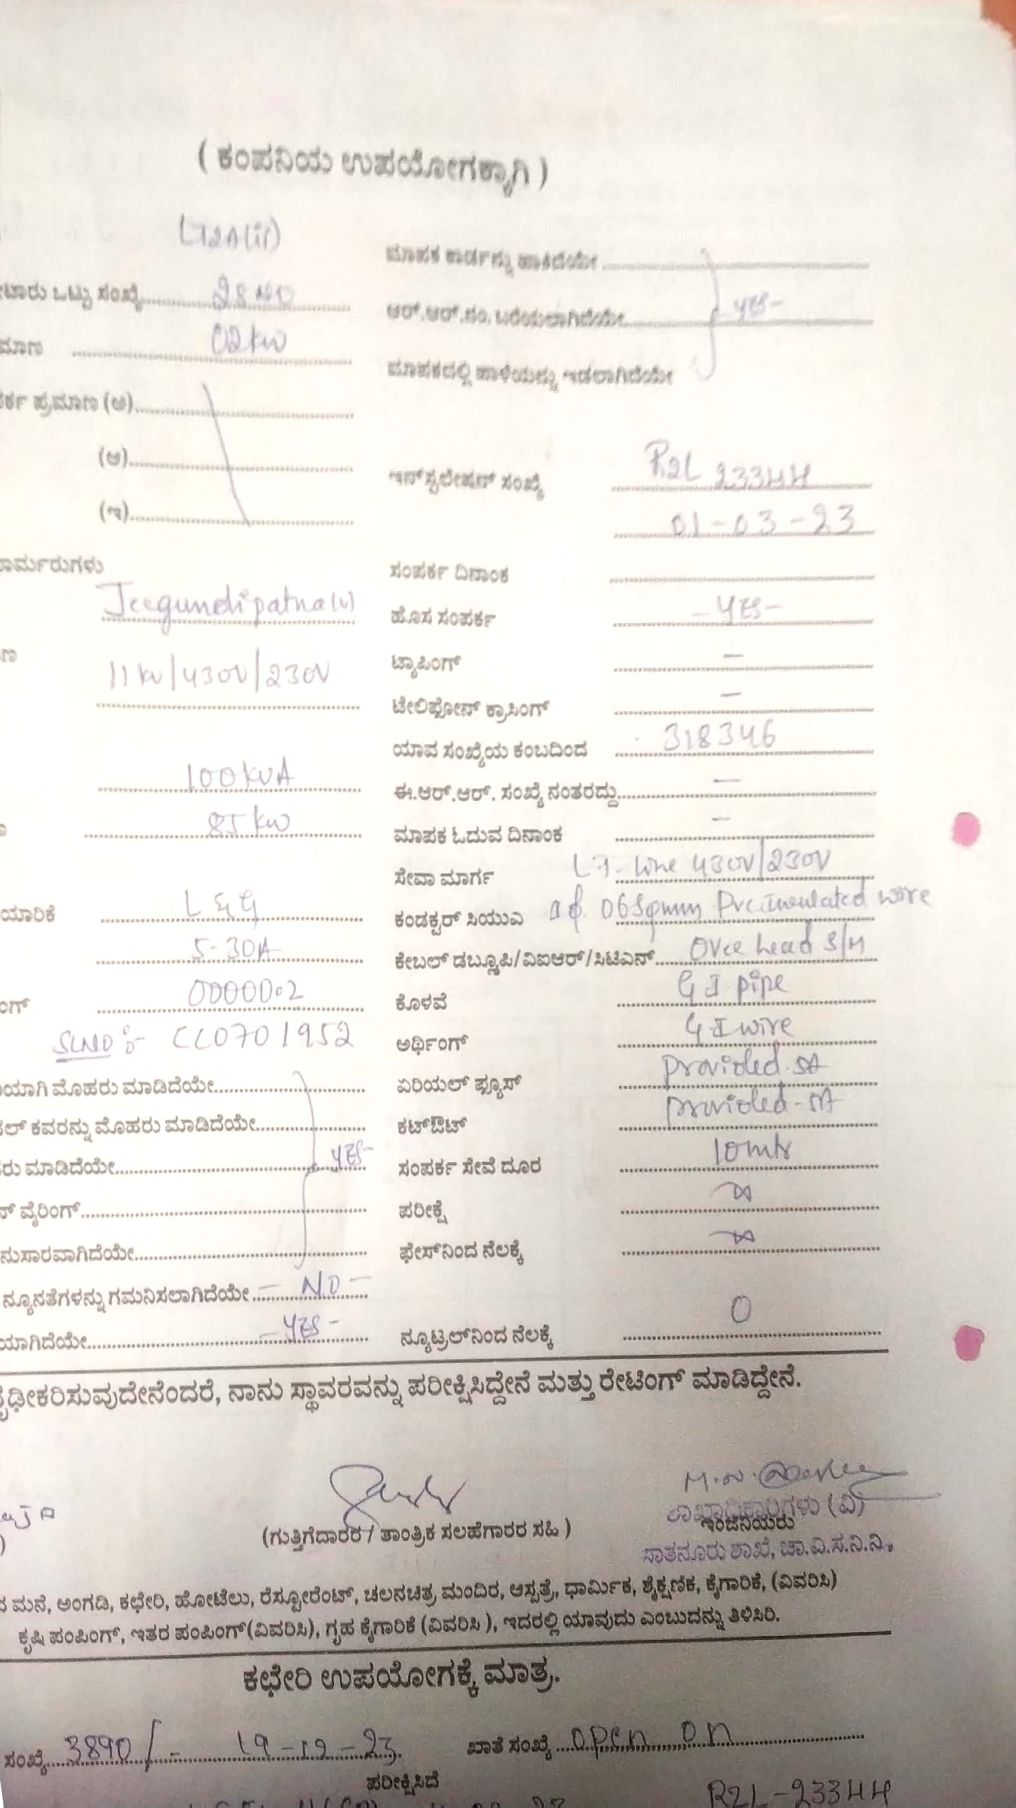 ( ಕಂಪನಿಯ ಉಪಯೋಗಕ್ಕಾಗಿ )
LT2A(ii)
ಮಾಪಕ ಕಾರ್ಡನ್ನು ಹಾಕಿದೆಯೇ
ಟಾರು ಒಟ್ಟು ಸಂಖ್ಯೆ 28 NO
ಆರ್.ಆರ್.ನಂ. ಬರೆಯಲಾಗಿದೆಯೇ YES-
ಮಾಣ 02 kW
ಮಾಪಕದಲ್ಲಿ ಹಾಳೆಯನ್ನು ಇಡಲಾಗಿದೆಯೇ
ರ್ಕ ಪ್ರಮಾಣ (ಅ)
(ಆ)
ಇನ್‌ಸ್ಟಲೇಷನ್ ಸಂಖ್ಯೆ R2L 23344
(ಇ)
01-03-23
ಾರ್ಮರುಗಳು
ಸಂಪರ್ಕ ದಿನಾಂಕ
Jeegundipatna(v)
ಹೊಸ ಸಂಪರ್ಕ -YES-
ಣ 11kv/430V/230V
ಟ್ಯಾಪಿಂಗ್ -
ಟೇಲಿಫೋನ್ ಕ್ರಾಸಿಂಗ್ -
ಯಾವ ಸಂಖ್ಯೆಯ ಕಂಬದಿಂದ 318346
100 kVA
ಈ.ಆರ್.ಆರ್. ಸಂಖ್ಯೆ ನಂತರದ್ದು -
85 kW
ಮಾಪಕ ಓದುವ ದಿನಾಂಕ -
ಸೇವಾ ಮಾರ್ಗ LT-Line 430V/230V
ಯಾರಿಕೆ L&G
ಕಂಡಕ್ಟರ್ ಸಿಯುಎ 06Sqmm Pre.insulated wire
5-30A
ಕೇಬಲ್ ಡಬ್ಲೂಪಿ/ವಿಐಆರ್/ಸಿಟಿಎನ್ Over head S/M
ಂಗ್ 00000.2
ಕೊಳವೆ G I pipe
SLNO :- CC0701952
ಅರ್ಥಿಂಗ್ G I wire
ಯಾಗಿ ಮೊಹರು ಮಾಡಿದೆಯೇ
ಏರಿಯಲ್ ಫ್ಯೂಸ್ provided. 5A
ಲ್ ಕವರನ್ನು ಮೊಹರು ಮಾಡಿದೆಯೇ
ಕಟ್‌ಔಟ್ provided-5A
ರು ಮಾಡಿದೆಯೇ YES-
ಸಂಪರ್ಕ ಸೇವೆ ದೂರ 10 mtr
ನ್ ವೈರಿಂಗ್
ಪರೀಕ್ಷೆ
ನುಸಾರವಾಗಿದೆಯೇ
ಫೇಸ್‌ನಿಂದ ನೆಲಕ್ಕೆ
ನ್ಯೂನತೆಗಳನ್ನು ಗಮನಿಸಲಾಗಿದೆಯೇ - NO -
ಯಾಗಿದೆಯೇ - YES -
ನ್ಯೂಟ್ರಲ್‌ನಿಂದ ನೆಲಕ್ಕೆ 0
ೃಢೀಕರಿಸುವುದೇನೆಂದರೆ, ನಾನು ಸ್ಥಾವರವನ್ನು ಪರೀಕ್ಷಿಸಿದ್ದೇನೆ ಮತ್ತು ರೇಟಿಂಗ್ ಮಾಡಿದ್ದೇನೆ.
ಶಾಖಾಧಿಕಾರಿಗಳು (ವಿ)
(ಗುತ್ತಿಗೆದಾರರ / ತಾಂತ್ರಿಕ ಸಲಹೆಗಾರರ ಸಹಿ ) ಇಂಜಿನಿಯರು
ಸಾತನೂರು ಶಾಖೆ, ಚಾ.ವಿ.ಸ.ನಿ.ನಿ.,
ಮನೆ, ಅಂಗಡಿ, ಕಛೇರಿ, ಹೋಟೆಲು, ರೆಸ್ಟೋರೆಂಟ್, ಚಲನಚಿತ್ರ ಮಂದಿರ, ಆಸ್ಪತ್ರೆ, ಧಾರ್ಮಿಕ, ಶೈಕ್ಷಣಿಕ, ಕೈಗಾರಿಕೆ, (ವಿವರಿಸಿ)
ಕೃಷಿ ಪಂಪಿಂಗ್, ಇತರ ಪಂಪಿಂಗ್(ವಿವರಿಸಿ), ಗೃಹ ಕೈಗಾರಿಕೆ (ವಿವರಿಸಿ ), ಇದರಲ್ಲಿ ಯಾವುದು ಎಂಬುದನ್ನು ತಿಳಿಸಿರಿ.
ಕಛೇರಿ ಉಪಯೋಗಕ್ಕೆ ಮಾತ್ರ.
ಸಂಖ್ಯೆ 3890/- 19-12-23. ಖಾತೆ ಸಂಖ್ಯೆ open on
ಪರೀಕ್ಷಿಸಿದೆ
R2L-23344